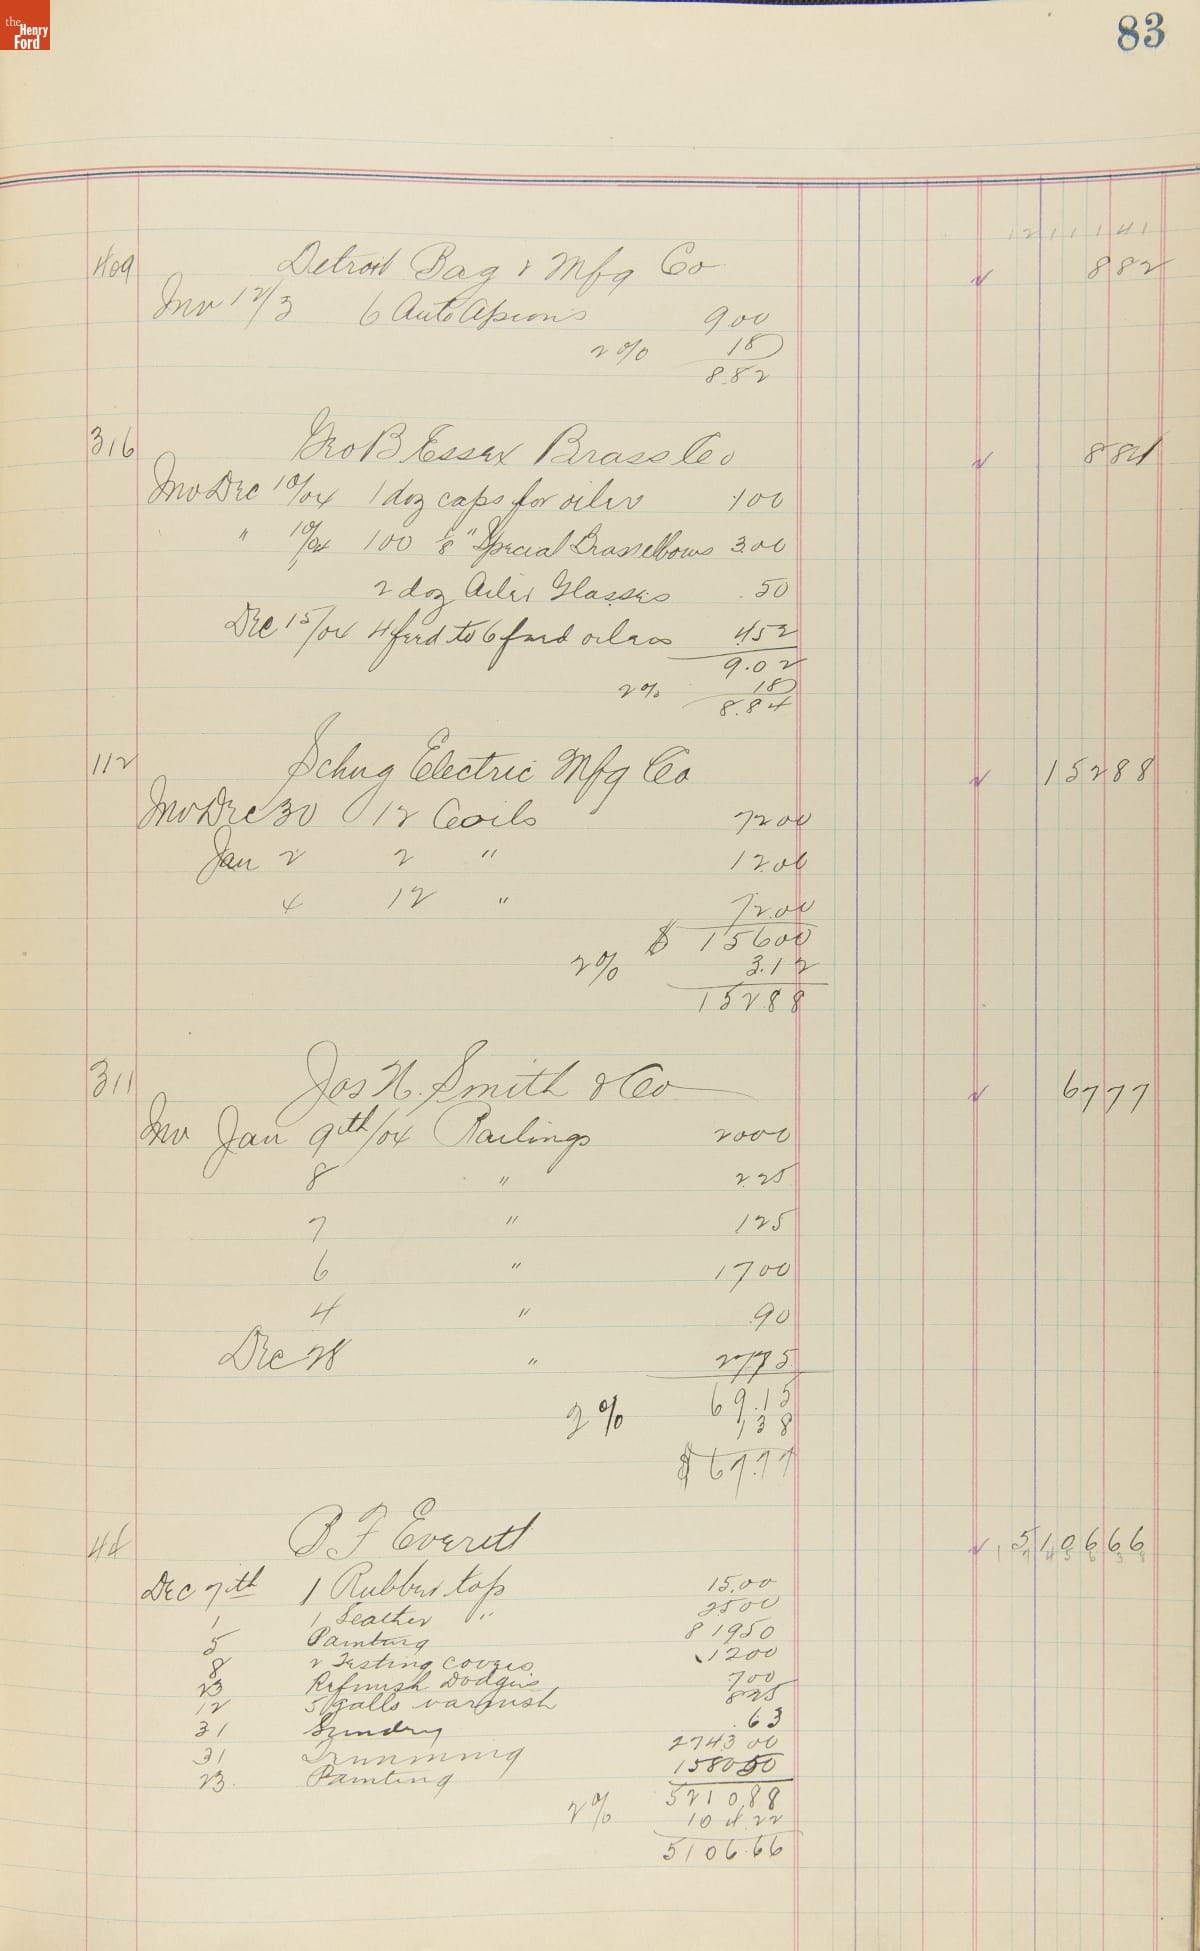 the Henry Ford
83
1211141
409 Detroit Bag & Mfg Co 882
Inv 12/3 6 Auto Aprons 900
2% 18
8.82
316 Geo B Essex Brass Co 884
Inv Dec 10/04 1 doz caps for oiler 100
" 10/04 100 1/8" Special Brass elbows 3.00
2 doz Oiler Glasses .50
Dec 15/04 4 feed to 6 feed oilers 4.52
9.02
2% 18
8.84
112 Schug Electric Mfg Co 15288
Inv Dec 30 12 Coils 7200
Jan 2 2 " 12.00
4 12 " 72.00
$ 15600
2% 3.12
15288
311 Jos N. Smith & Co 6777
Inv Jan 9th/04 Railings 2000
8 " 2.25
7 " 125
6 " 1700
4 " .90
Dec 28 " 2775
69.15
2% 138
$67.77
44 B F Everett 510666
Dec 7th 1 Rubber top 15.00
1 1 Leather " 2500
5 Painting 81950
8 2 Testing covers 1200
23 Refinish Dodgers 700
12 5 galls varnish 825
31 Sundry .63
31 Trimming 274300
23. Painting 158050
2% 5210.88
104.22
5106.66